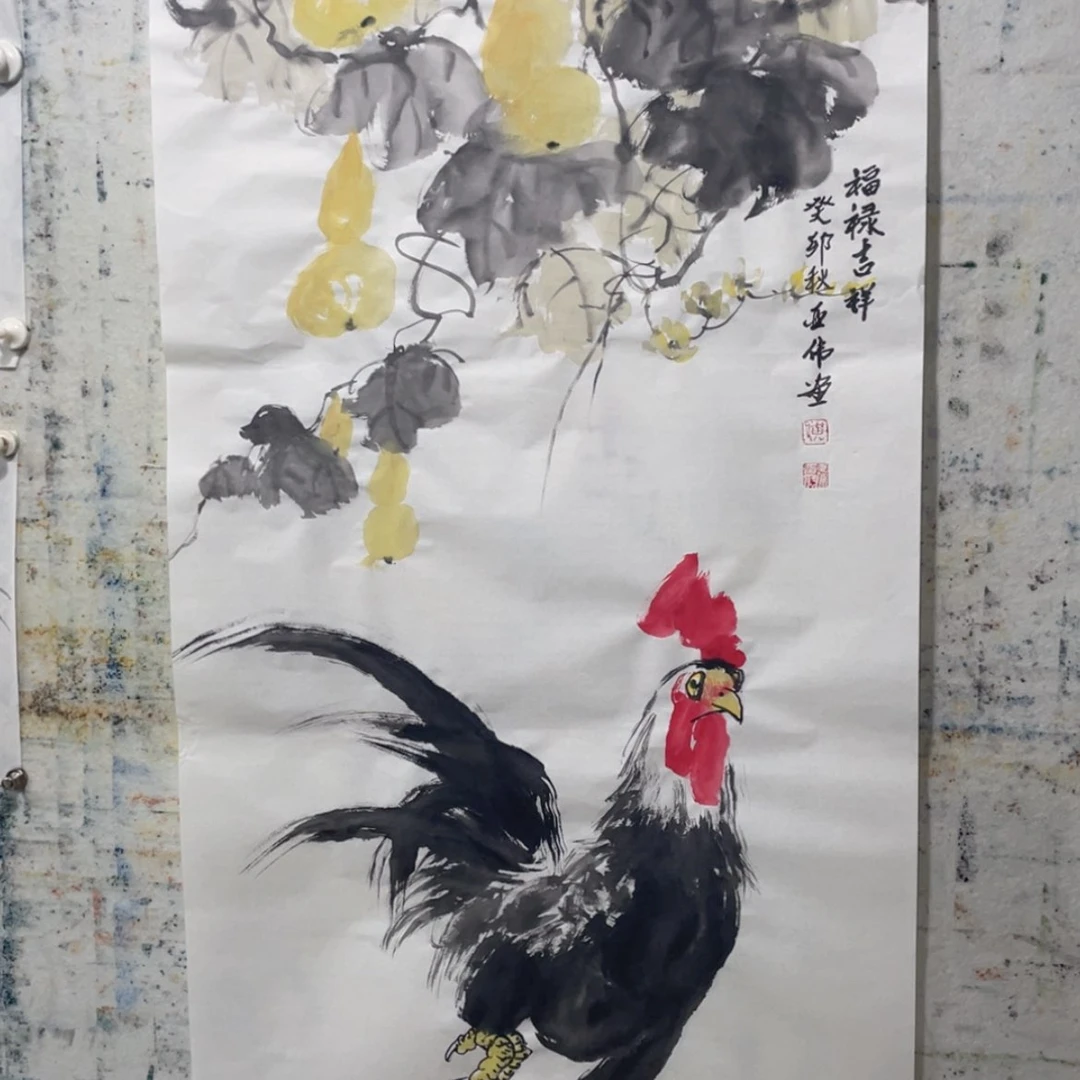 福禄吉祥
癸卯秋亚伟画